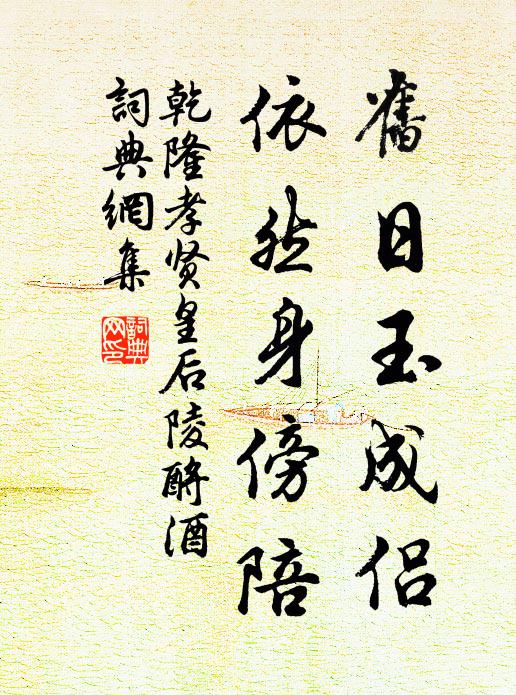 舊日玉成侣
依然身傍陪
乾隆孝贤皇后陵酹酒
詞典網集
詞典
网印